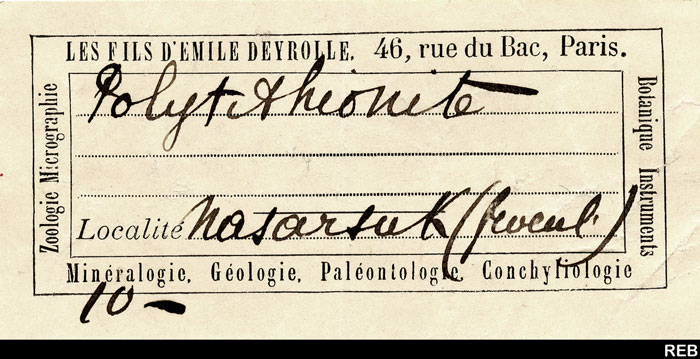 LES FILS D'EMILE DEYROLLE. 46, rue du Bac, Paris.
Zoologie Micrographie
Polytithionite
Localité Nasarsuk (Groenl.)
Botanique Instruments
Minéralogie, Géologie, Paléontologie, Conchyliologie
10 —
REB